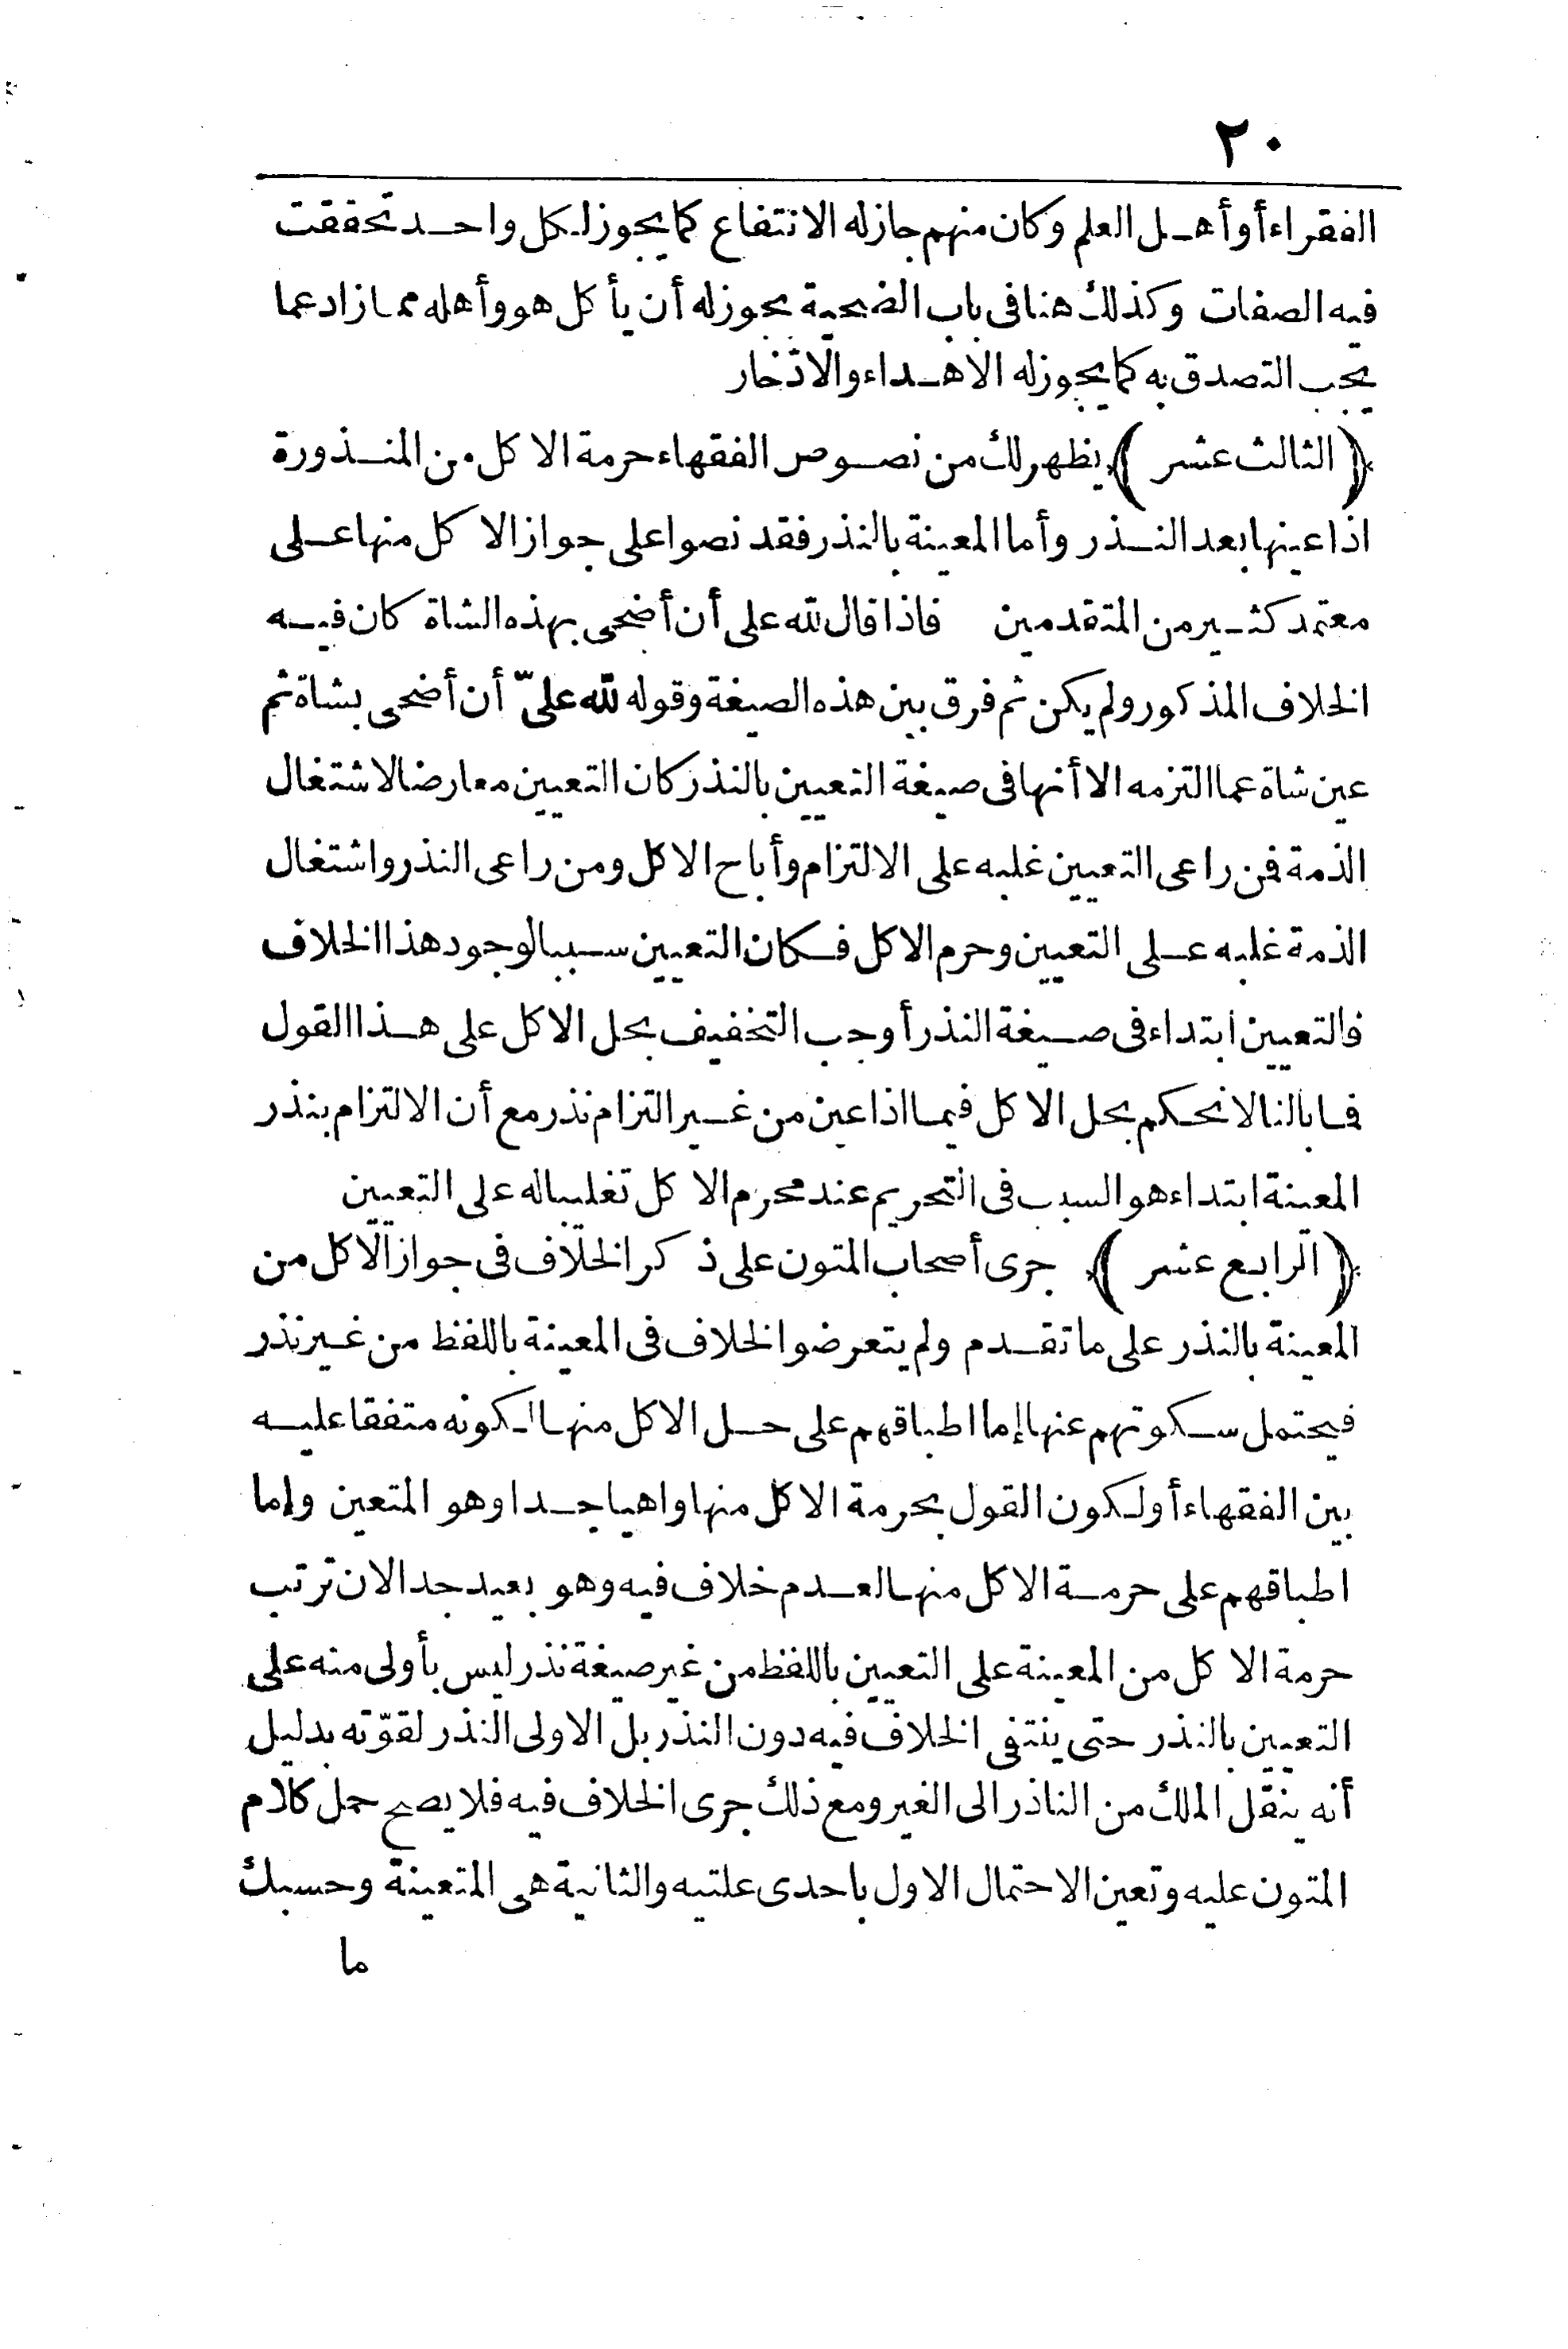 ٢٠
الفقراء أو أهل العلم وكان منهم جاز له الانتفاع كما يجوز لكل واحد تحققت
فيه الصفات وكذلك هنا فى باب الضحية يجوز له أن يأكل هو وأهله مما زاد عما
يجب التصدق به كما يجوز له الاهداء والادّخار
﴿ الثالث عشر ﴾ يظهر لك من نصوص الفقهاء حرمة الاكل من المنذورة
اذا عينها بعد النذر وأما المعينة بالنذر فقد نصوا على جواز الاكل منها على
معتمد كثير من المتقدمين فاذا قال لله على أن أضحى بهذه الشاة كان فيه
الخلاف المذكور ولم يكن ثم فرق بين هذه الصيغة وقوله لله علىّ أن أضحى بشاة ثم
عين شاة عما التزمه الا أنها فى صيغة التعيين بالنذر كان التعيين معارضا لاشتغال
الذمة فمن راعى التعيين غلبه على الالتزام وأباح الاكل ومن راعى النذر واشتغال
الذمة غلبه على التعيين وحرم الاكل فكان التعيين سببا لوجود هذا الخلاف
فالتعيين ابتداء فى صيغة النذر أوجب التخفيف بحل الاكل على هذا القول
فما بالنا لا نحكم بحل الاكل فيما اذا عين من غير التزام نذر مع أن الالتزام بنذر
المعينة ابتداء هو السبب فى التحريم عند محرم الاكل تغليبا له على التعيين
﴿ الرابع عشر ﴾ جرى أصحاب المتون على ذكر الخلاف فى جواز الاكل من
المعينة بالنذر على ما تقدم ولم يتعرضوا لخلاف فى المعينة باللفظ من غير نذر
فيحتمل سكوتهم عنها إما اطباقهم على حل الاكل منها لكونه متفقا عليه
بين الفقهاء أو لكون القول بحرمة الاكل منها واهيا جدا وهو المتعين وإما
اطباقهم على حرمة الاكل منها لعدم خلاف فيه وهو بعيد جدا لان ترتب
حرمة الاكل من المعينة على التعيين باللفظ من غير صيغة نذر ليس بأولى منه على
التعيين بالنذر حتى ينتفى الخلاف فيه دون النذر بل الاولى النذر لقوّته بدليل
أنه ينقل الملك من الناذر الى الغير ومع ذلك جرى الخلاف فيه فلا يصح حمل كلام
المتون عليه وتعين الاحتمال الاول باحدى علتيه والثانية هى المتعينة وحسبك
ما